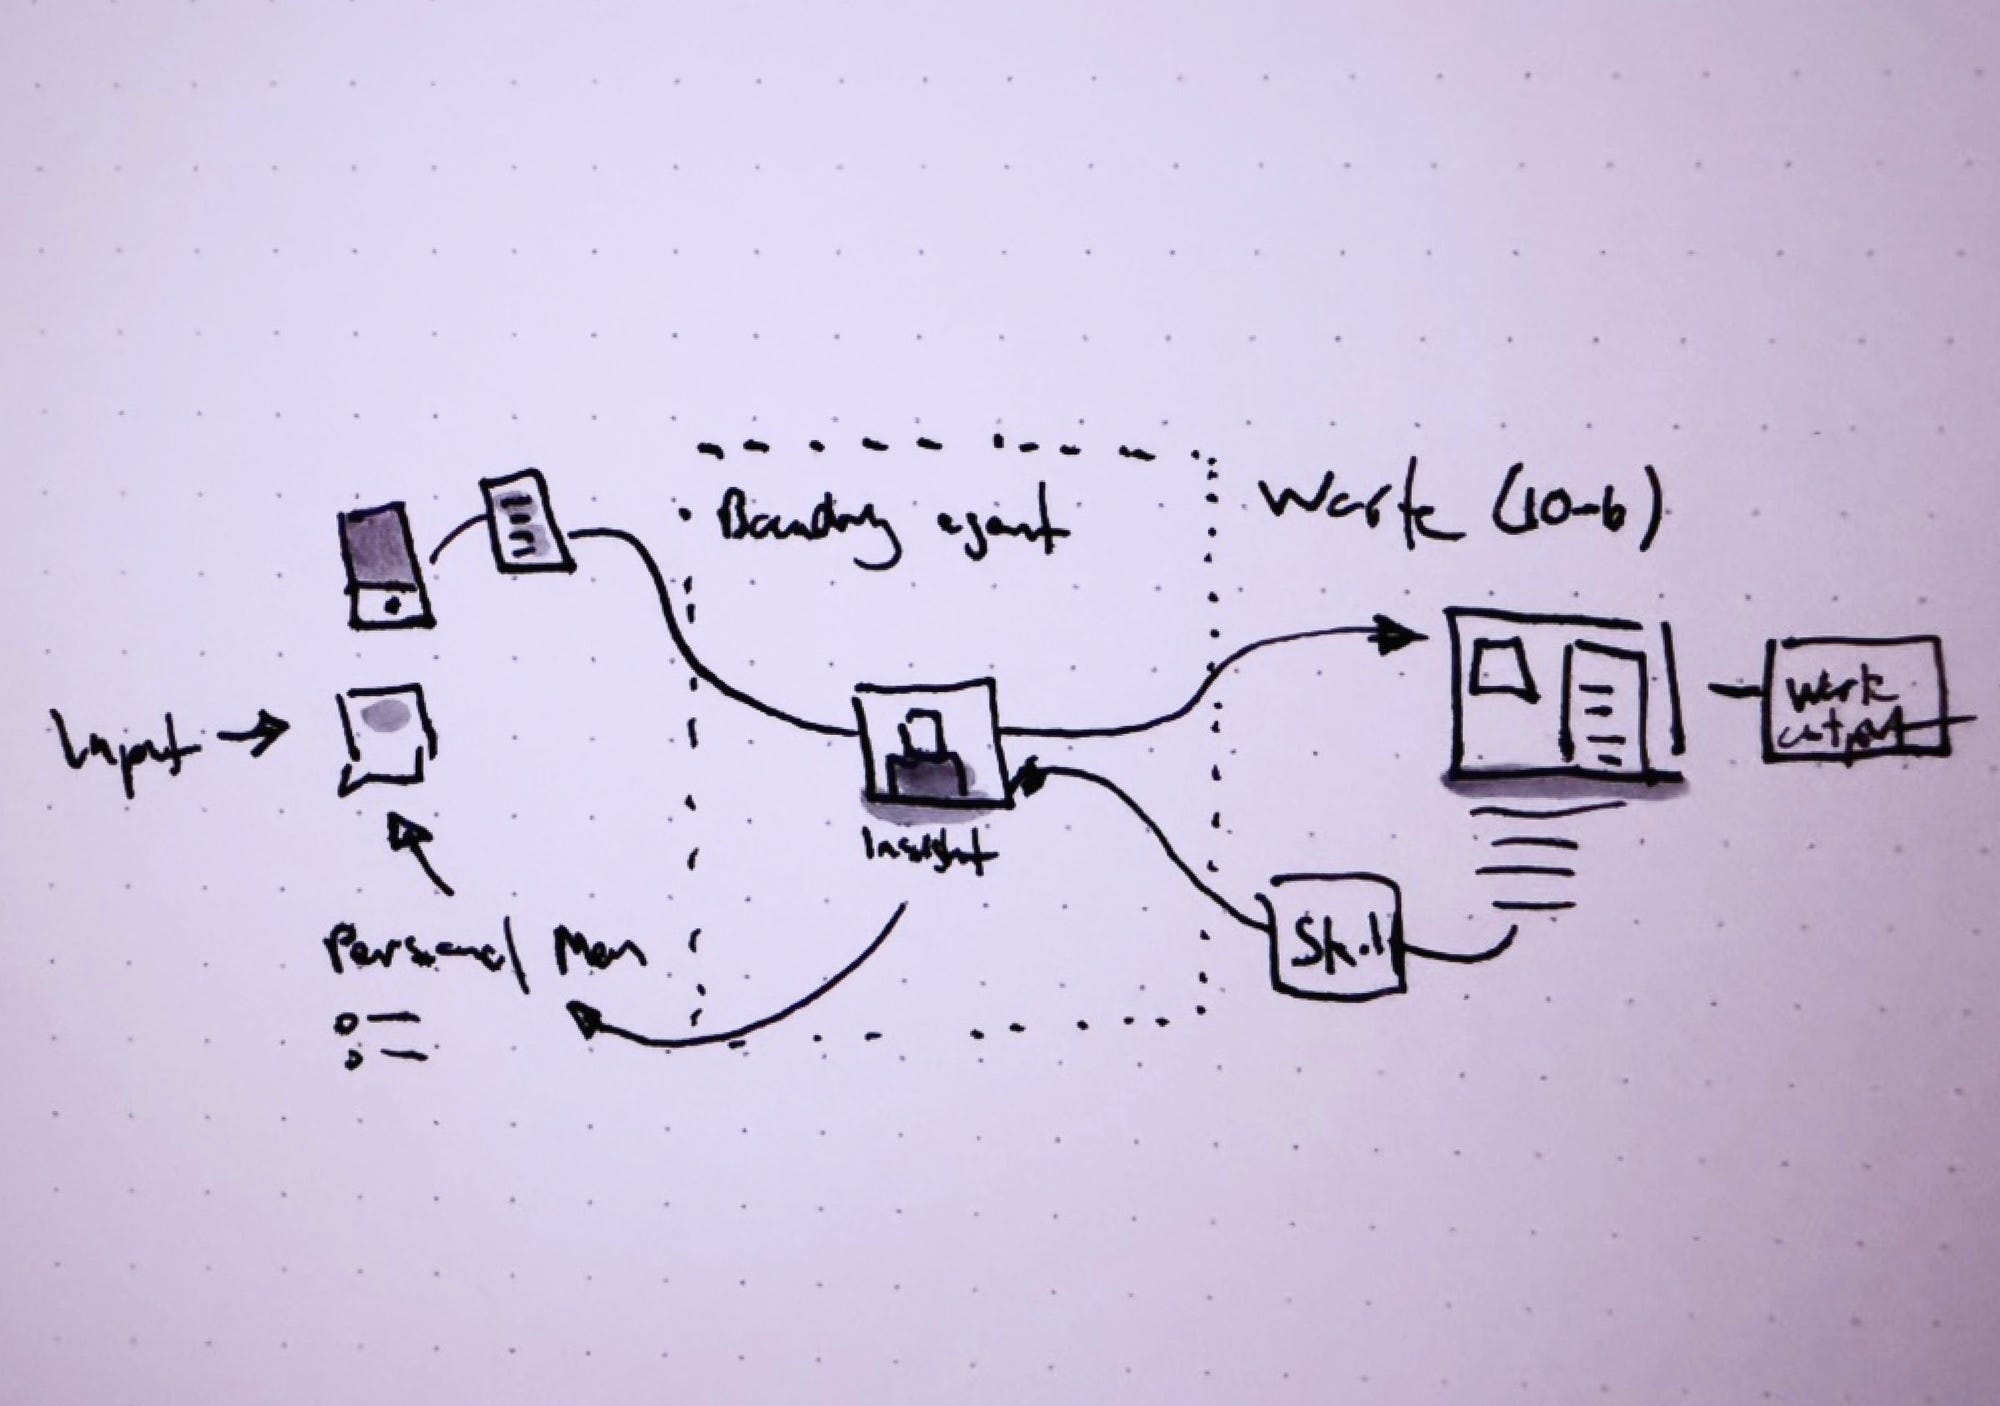 Boundary agent
Work (10-6)
Input
Work
output
Insight
Personal Mem
Skill